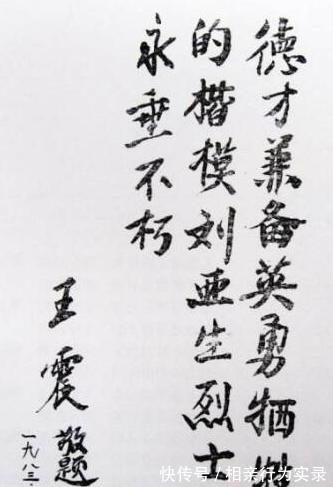 德才兼备英勇牺牲
的楷模刘亚生烈士
永垂不朽
王震敬题
一九八三·
快传号/相亲行为实录